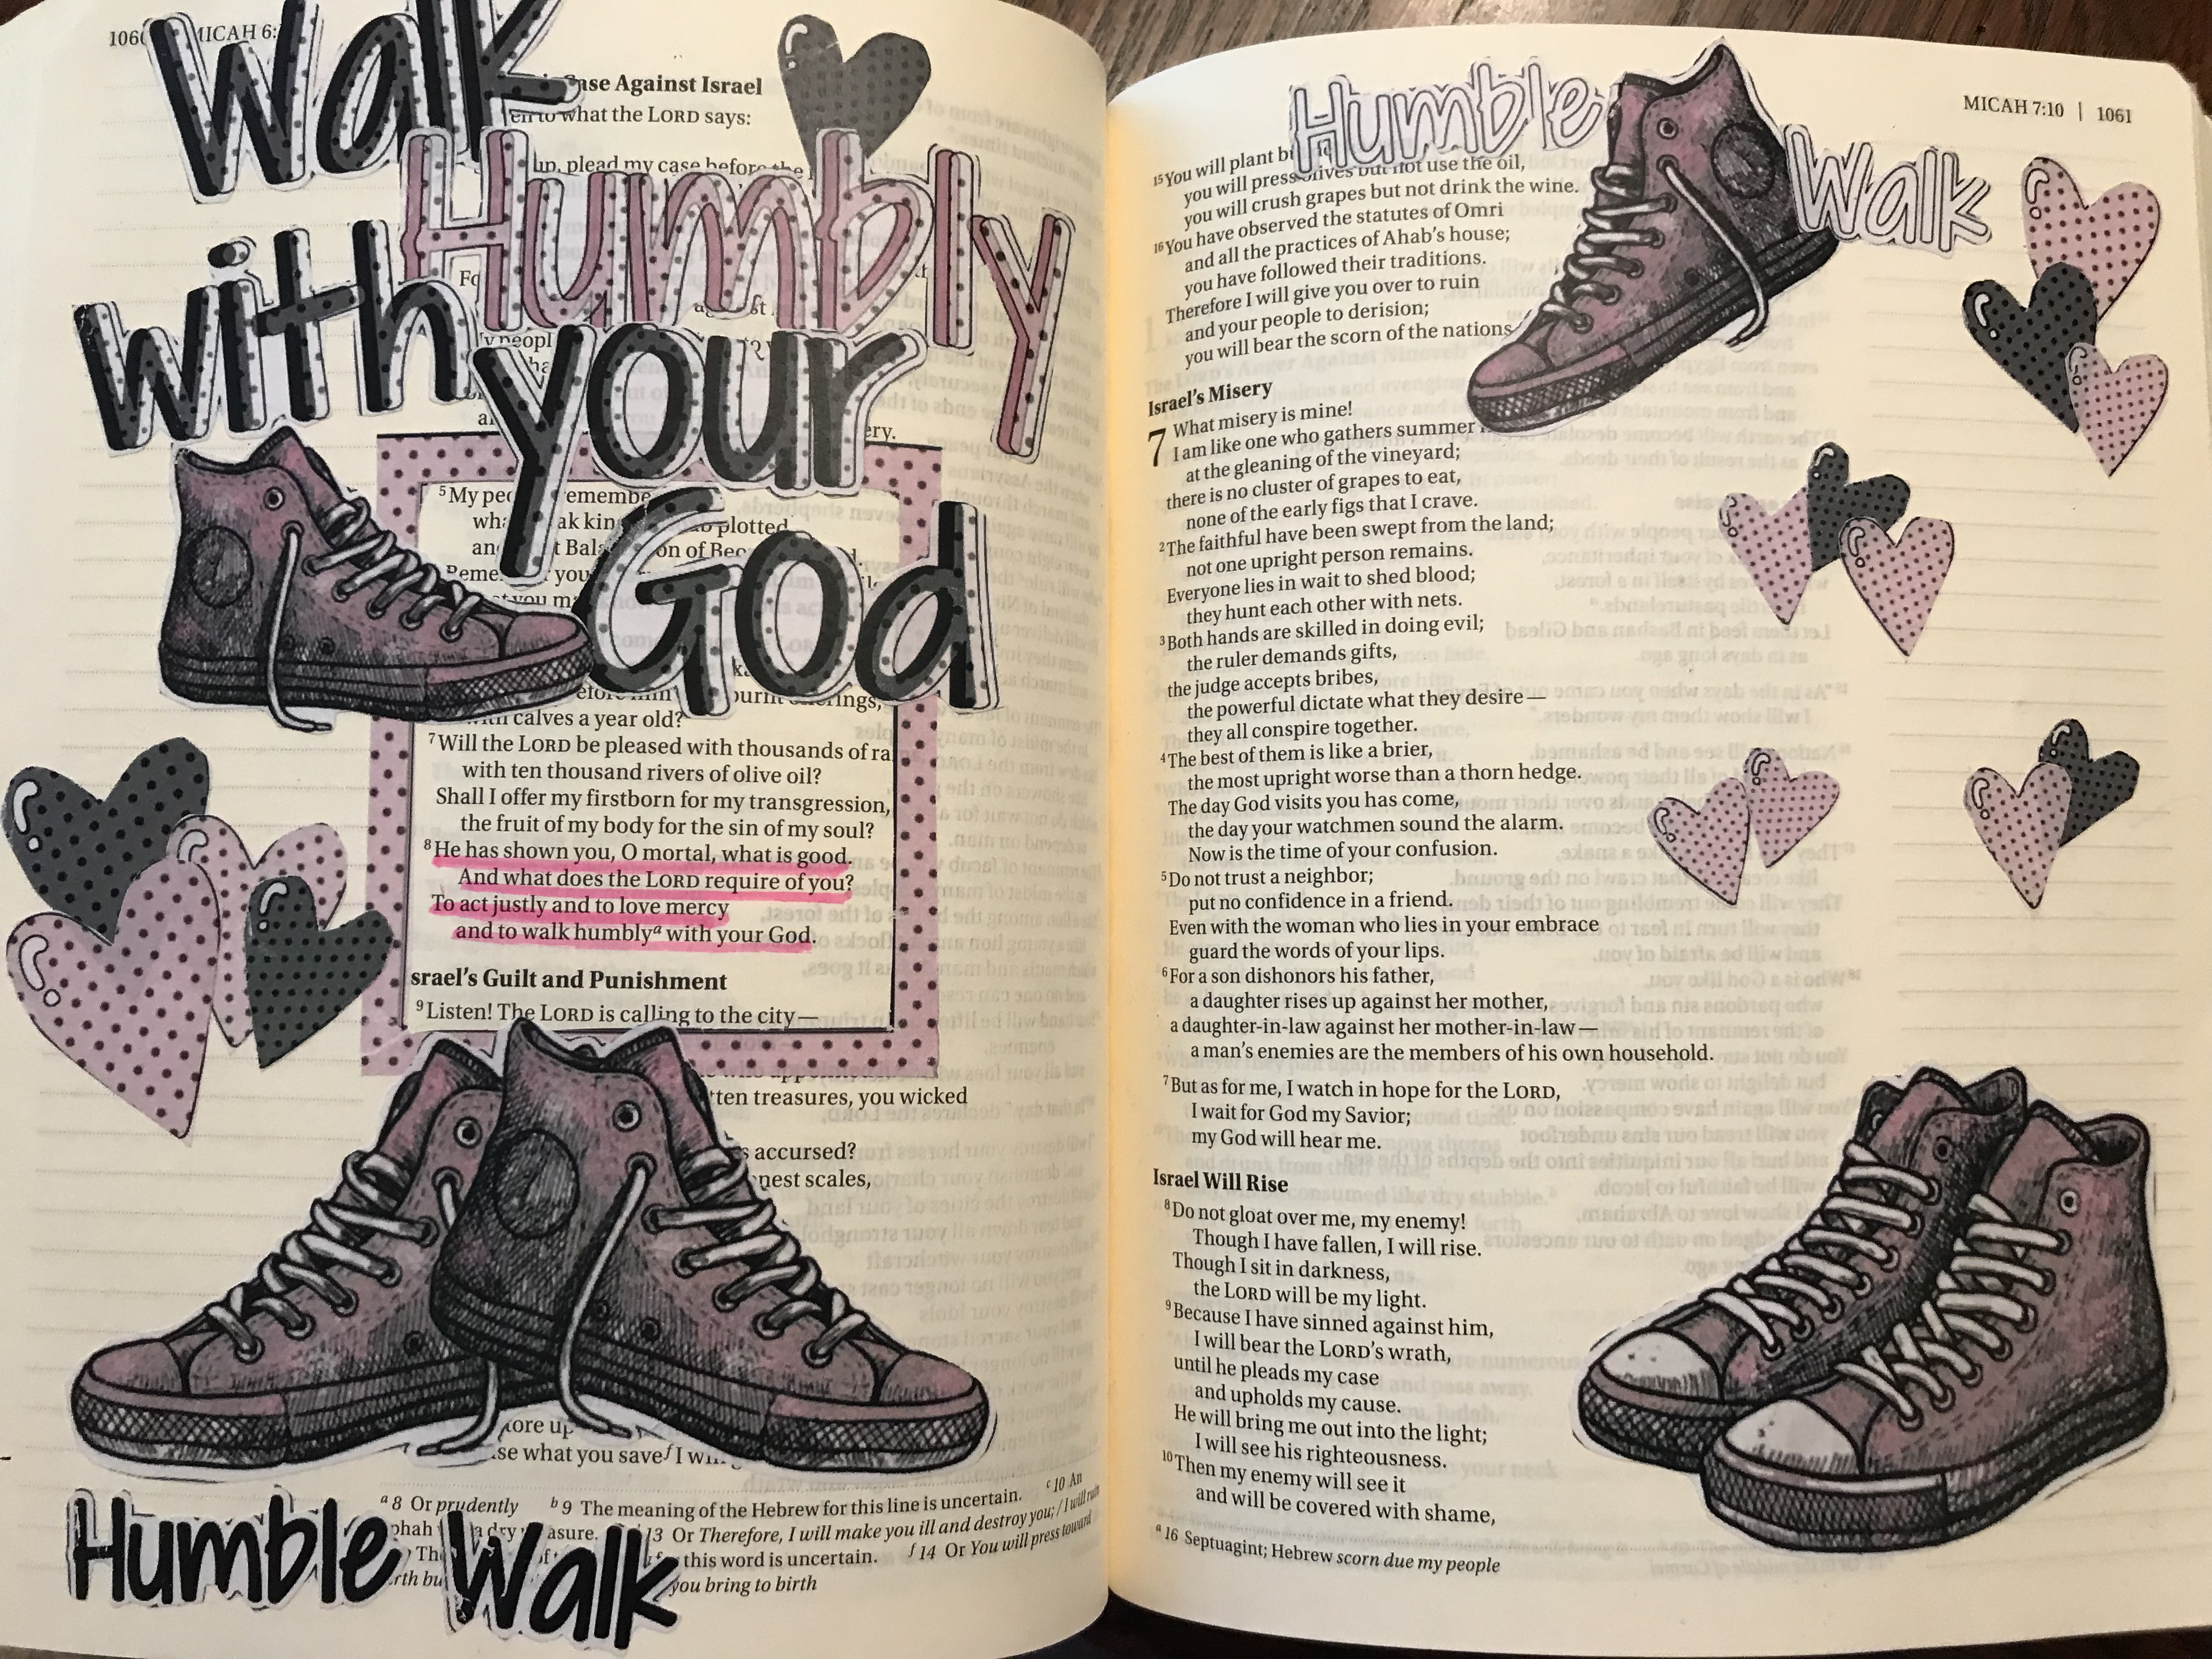 106
MICAH 6:
Walk
Case Against Israel
what the LORD says:
up, plead my case before the
Humbly
with
your
God
ery.
⁵My remembe
plotted
calves a year old?
⁷Will the LORD be pleased with thousands of ra
with ten thousand rivers of olive oil?
Shall I offer my firstborn for my transgression,
the fruit of my body for the sin of my soul?
⁸He has shown you, O mortal, what is good.
And what does the LORD require of you?
To act justly and to love mercy
and to walk humblyᵃ with your God.
srael's Guilt and Punishment
⁹Listen! The LORD is calling to the city—
tten treasures, you wicked
accursed?
nest scales,
tore up
se what you saveᶠ I
ᵃ 8 Or prudently ᵇ 9 The meaning of the Hebrew for this line is uncertain. ᶜ 10 An
phah dry asure. 13 Or Therefore, I will make you ill and destroy you; / I will ruin
Th of this word is uncertain. ᶠ 14 Or You will press toward
rth bu you bring to birth
Humble Walk
MICAH 7:10 | 1061
Humble
Walk
¹⁵You will plant b
you will press olives but not use the oil,
you will crush grapes but not drink the wine.
¹⁶You have observed the statutes of Omri
and all the practices of Ahab's house;
you have followed their traditions.
Therefore I will give you over to ruin
and your people to derision;
you will bear the scorn of the nations
Israel's Misery
7 What misery is mine!
I am like one who gathers summer
at the gleaning of the vineyard;
there is no cluster of grapes to eat,
none of the early figs that I crave.
²The faithful have been swept from the land;
not one upright person remains.
Everyone lies in wait to shed blood;
they hunt each other with nets.
³Both hands are skilled in doing evil;
the ruler demands gifts,
the judge accepts bribes,
the powerful dictate what they desire—
they all conspire together.
⁴The best of them is like a brier,
the most upright worse than a thorn hedge.
The day God visits you has come,
the day your watchmen sound the alarm.
Now is the time of your confusion.
⁵Do not trust a neighbor;
put no confidence in a friend.
Even with the woman who lies in your embrace
guard the words of your lips.
⁶For a son dishonors his father,
a daughter rises up against her mother,
a daughter-in-law against her mother-in-law—
a man's enemies are the members of his own household.
⁷But as for me, I watch in hope for the LORD,
I wait for God my Savior;
my God will hear me.
Israel Will Rise
⁸Do not gloat over me, my enemy!
Though I have fallen, I will rise.
Though I sit in darkness,
the LORD will be my light.
⁹Because I have sinned against him,
I will bear the LORD's wrath,
until he pleads my case
and upholds my cause.
He will bring me out into the light;
I will see his righteousness.
¹⁰Then my enemy will see it
and will be covered with shame,
ᵃ 16 Septuagint; Hebrew scorn due my people